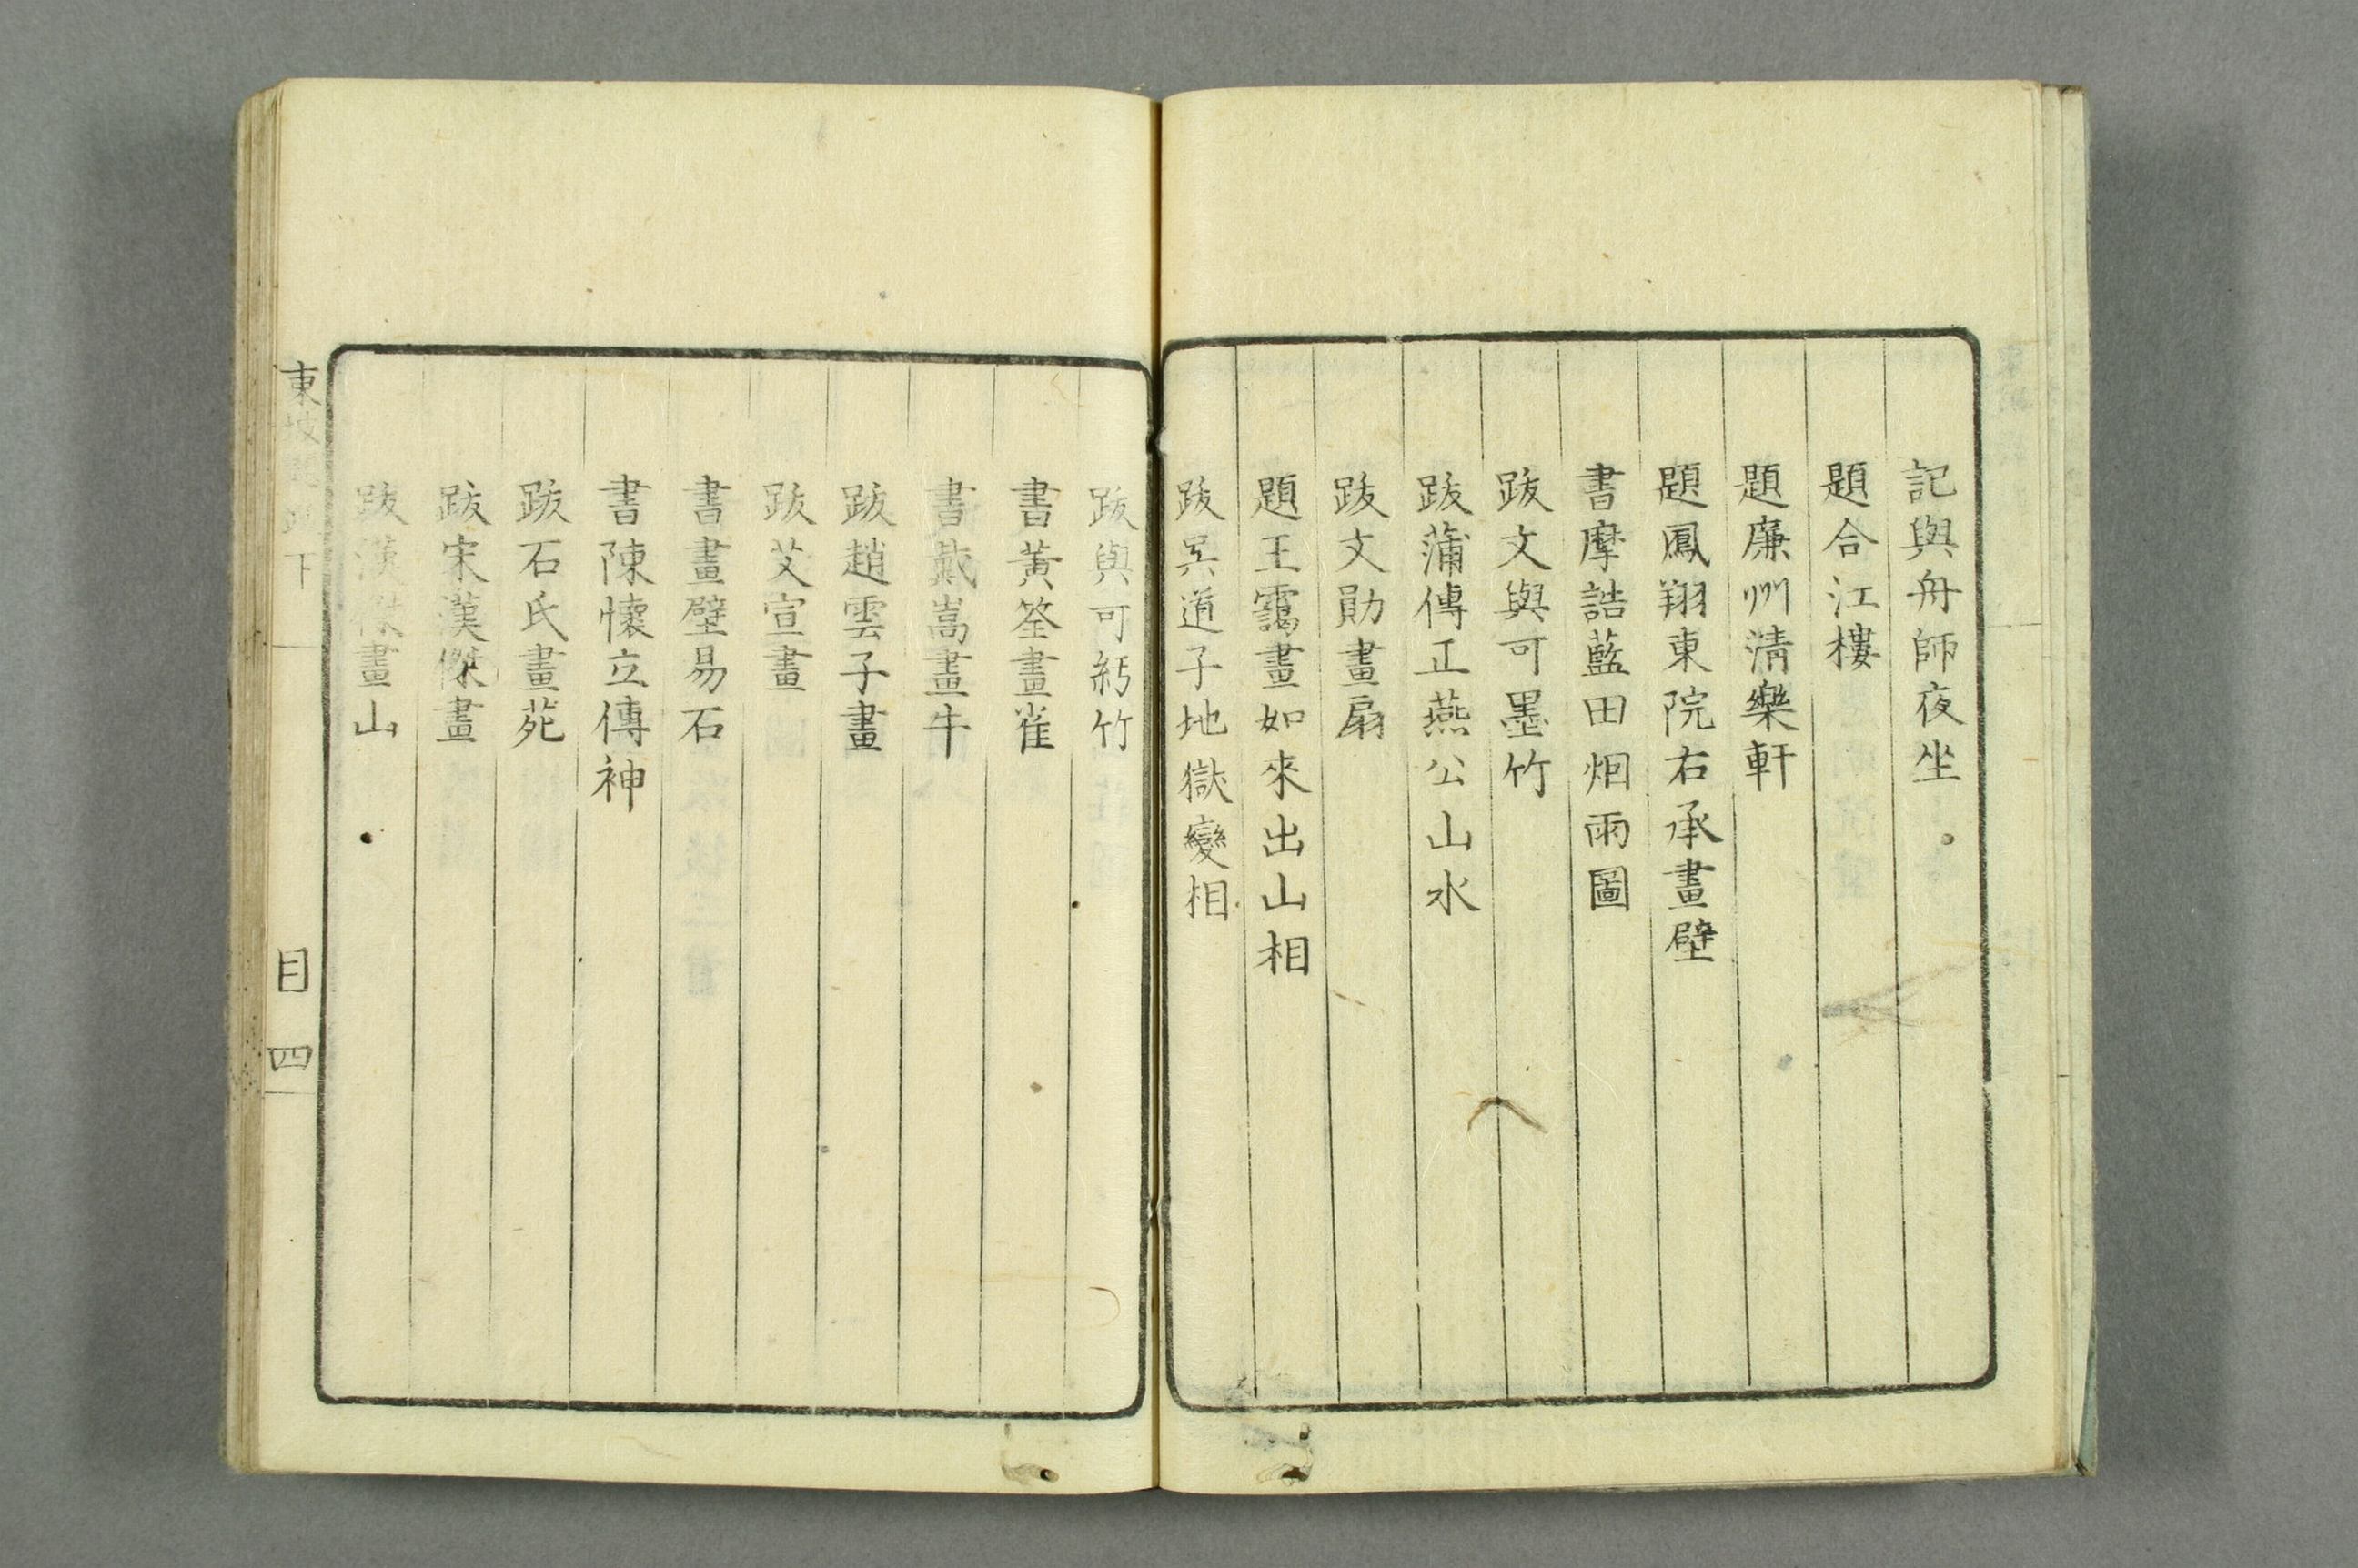 記與舟師夜坐
題合江樓
題廉州清樂軒
題鳳翔東院右承畫壁
書摩詰藍田烟雨圖
跋文與可墨竹
跋蒲傳正燕公山水
跋文勛畫扇
題王靄畫如來出山相
跋吴道子地獄變相
跋與可紆竹
書黃筌畫雀
書戴嵩畫牛
跋趙雲子畫
跋艾宣畫
書畫壁易石
書陳懷立傳神
跋石氏畫苑
跋宋漢傑畫
跋漢傑畫山
東坡 下
目 四